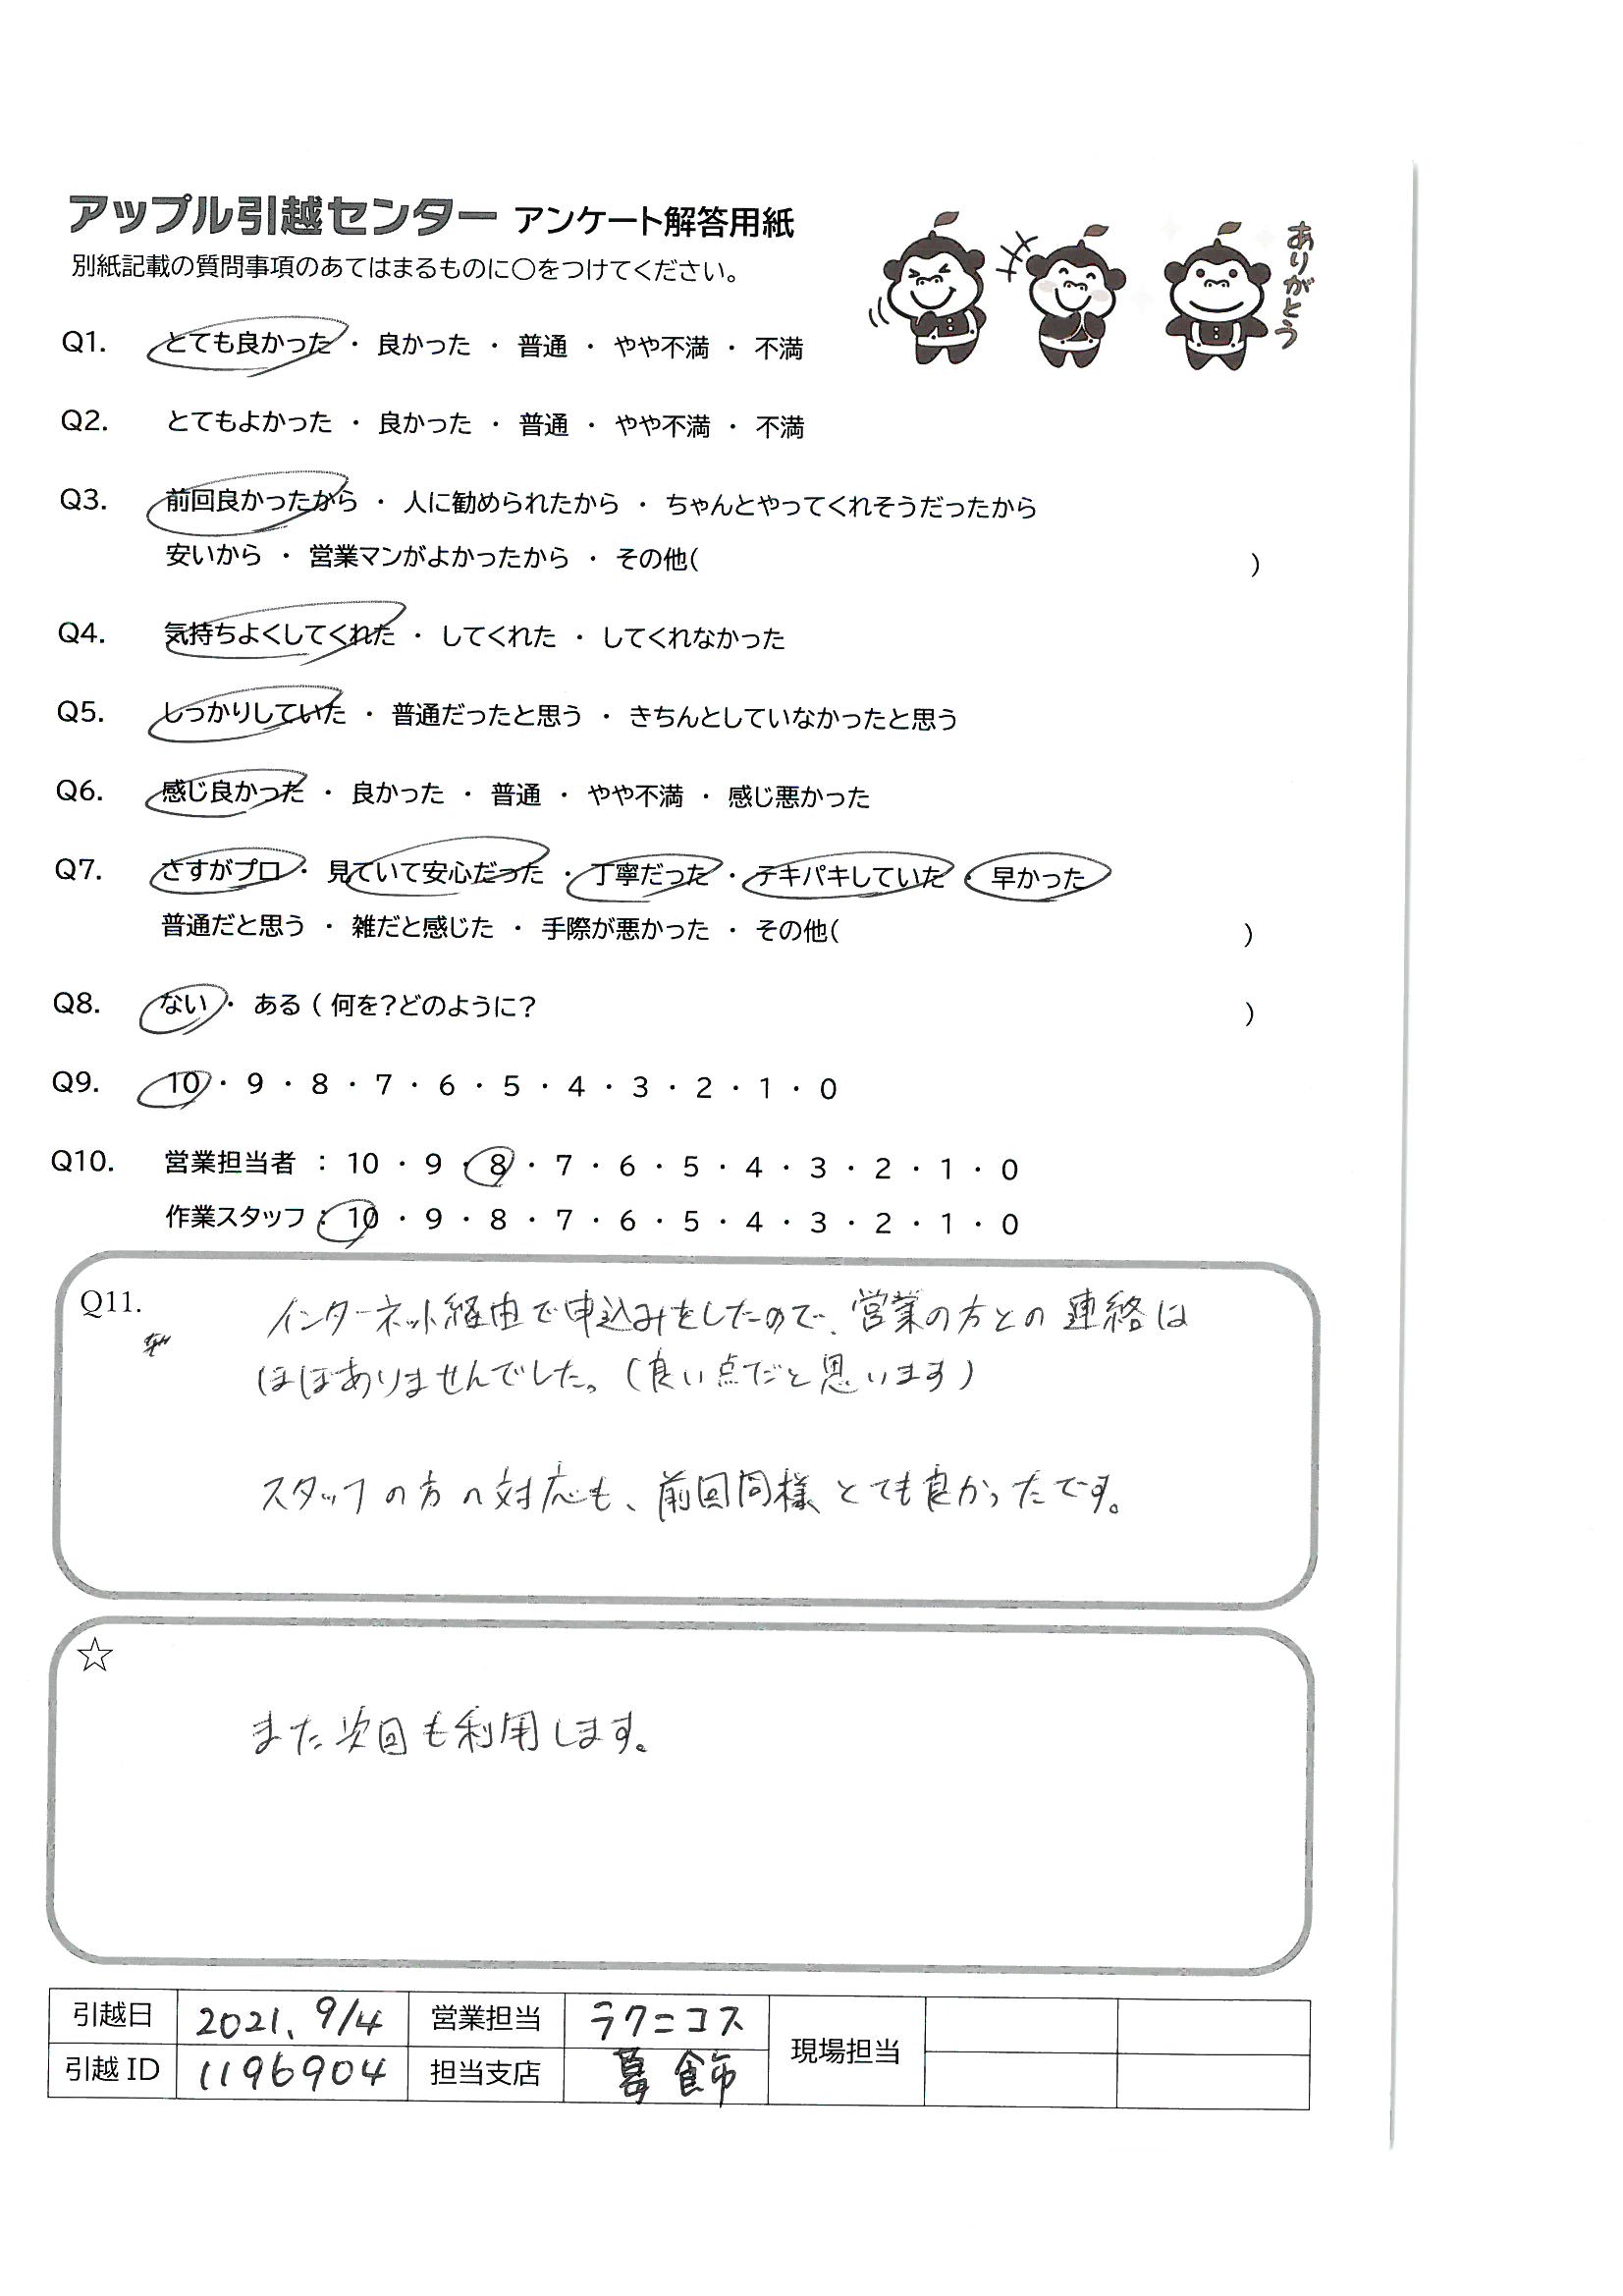 アップル引越センター アンケート解答用紙
ありがとう
別紙記載の質問事項のあてはまるものに○をつけてください。
Q1. とても良かった ・ 良かった ・ 普通 ・ やや不満 ・ 不満
Q2. とてもよかった ・ 良かった ・ 普通 ・ やや不満 ・ 不満
Q3. 前回良かったから ・ 人に勧められたから ・ ちゃんとやってくれそうだったから
安いから ・ 営業マンがよかったから ・ その他( )
Q4. 気持ちよくしてくれた ・ してくれた ・ してくれなかった
Q5. しっかりしていた ・ 普通だったと思う ・ きちんとしていなかったと思う
Q6. 感じ良かった ・ 良かった ・ 普通 ・ やや不満 ・ 感じ悪かった
Q7. さすがプロ ・ 見ていて安心だった ・ 丁寧だった ・ テキパキしていた ・ 早かった
普通だと思う ・ 雑だと感じた ・ 手際が悪かった ・ その他( )
Q8. ない ・ ある ( 何を?どのように? )
Q9. 10 ・ 9 ・ 8 ・ 7 ・ 6 ・ 5 ・ 4 ・ 3 ・ 2 ・ 1 ・ 0
Q10. 営業担当者 : 10 ・ 9 ・ 8 ・ 7 ・ 6 ・ 5 ・ 4 ・ 3 ・ 2 ・ 1 ・ 0
作業スタッフ : 10 ・ 9 ・ 8 ・ 7 ・ 6 ・ 5 ・ 4 ・ 3 ・ 2 ・ 1 ・ 0
Q11. インターネット経由で申込みをしたので、営業の方との連絡は
ほぼありませんでした。(良い点だと思います)
スタッフの方の対応も、前回同様とても良かったです。
☆
また次回も利用します。
引越日 2021. 9/4 営業担当 ラクニコス 現場担当
引越 ID 1196904 担当支店 葛飾